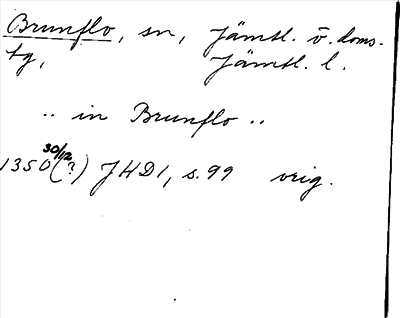 Brunflo, sn, Jämtl. v. doms-
tg, Jämtl. l.
.. in Brunflo ..
30/12
1350(?) JHD1, s. 99 orig.